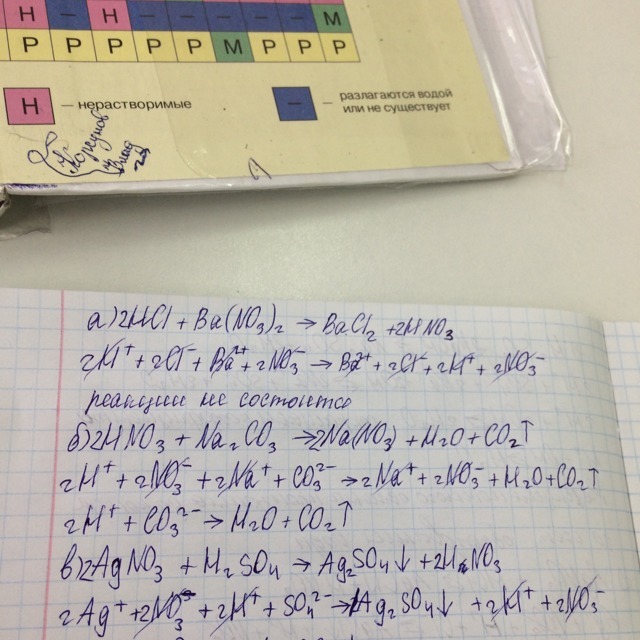 Н – Н – – – – – – М
Р Р Р Р Р М Р Р Р
Н – нерастворимые
– – разлагаются водой
или не существует
а) 2HCl + Ba(NO₃)₂ → BaCl₂ + 2HNO₃
2H⁺ + 2Cl⁻ + Ba²⁺ + 2NO₃⁻ → Ba²⁺ + 2Cl⁻ + 2H⁺ + 2NO₃⁻
реакции не состоится
б) 2HNO₃ + Na₂CO₃ → 2Na(NO₃) + H₂O + CO₂↑
2H⁺ + 2NO₃⁻ + 2Na⁺ + CO₃²⁻ → 2Na⁺ + 2NO₃⁻ + H₂O + CO₂↑
2H⁺ + CO₃²⁻ → H₂O + CO₂↑
в) 2AgNO₃ + H₂SO₄ → Ag₂SO₄↓ + 2HNO₃
2Ag⁺ + 2NO₃⁻ + 2H⁺ + SO₄²⁻ → Ag₂SO₄↓ + 2H⁺ + 2NO₃⁻